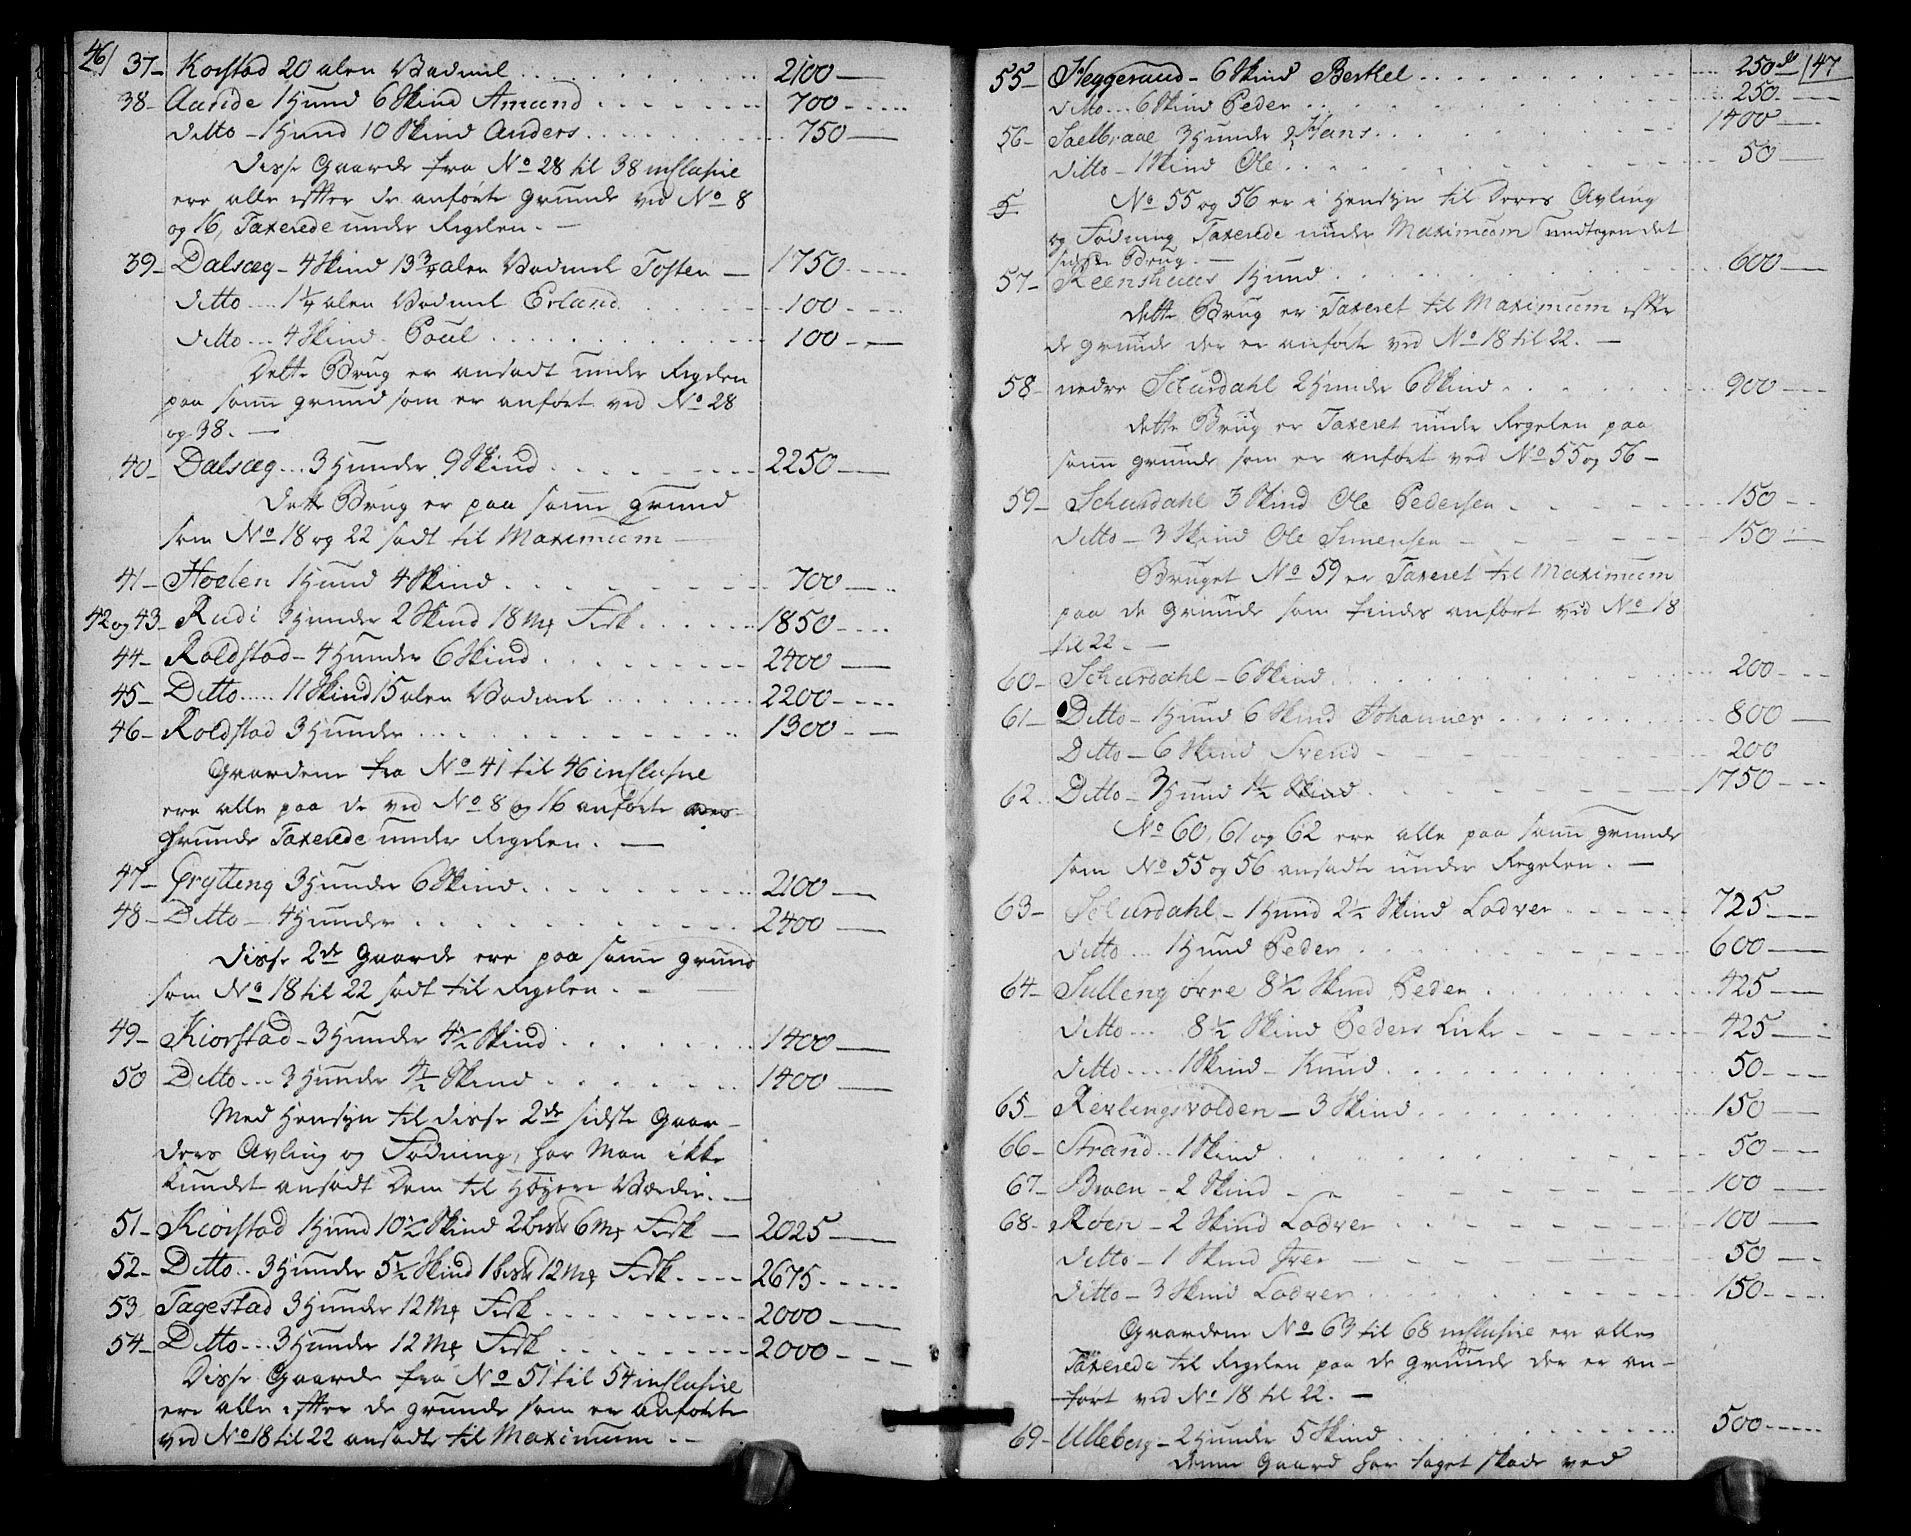 46
37 - Korstad 20 alen Vadmel 2100
38 - Aanide 1 Hund 6 Skind Amund 700
ditto - 1 Hund 10 Skind Anders 750
Disse Gaarde fra No 28 til 38 inclusive
ere alle efter de anførte Grunde ved No 8
og 16, Taxerede under Regelen. -
39 - Dalsæg - 4 Skind 13 3/4 alen Vadmel Tosten - 1750
ditto 1 1/4 alen Vadmel Erland 100
ditto 4 Skind Poul 100
Dette Brug er ansadt under Regelen
paa samme grund som er anført ved No 28
og 38. -
40 - Dalsæg 3 Hunder 9 Skind 2250
dette Brug er paa samme grund
som No 18 og 22 sadt til Maximum
41 - Hoelen 1 Hund 4 Skind 700
42 og 43 - Rudi 3 Hunder 2 Skind 18 Mk Fisk 1850
44 - Roldstad - 4 Hunder 6 Skind 2400
45 - Ditto 11 Skind 15 alen Vadmel 2200
46 - Roldstad 3 Hunder 1300
Gaardene fra No 41 til 46 inclusive
ere alle paa de ved No 8 og 16 anførte
Grunde Taxerede under Regelen. -
47 - Grytteng 3 Hunder 6 Skind 2100
48 - Ditto - 4 Hunder 2400
Disse 2de Gaarde ere paa samme grund
som No 18 til 22 sadt til Regelen. -
49 - Kiorstad - 3 Hunder 4 1/2 Skind 1400
50 Ditto 3 Hunder 4 1/2 Skind 1400
Med Hensyn til disse 2de sidste Gaar-
ders Avling og Fødning, har Man ikke
kundet ansadt Dem til høyere Værdie. -
51 - Kiorstad 1 Hund 10 1/2 Skind 2 6 Mk Fisk - 2025
52 - Ditto 3 Hunder 5 1/2 Skind 1 12 Mk Fisk 2675
53 Tagestad 3 Hunder 12 Mk Fisk 2000
54 - Ditto 3 Hunder 12 Mk Fisk 2000
Disse Gaarde fra No 51 til 54 inclusive
ere alle efter de grunde som er anførte
ved No 18 til 22 ansadte til Maximum -
47
55 - Heggerund - 6 Skind Berthel 250
ditto 6 Skind Peder 250
56 - Saelbraae 3 Hunder Hans 1400
ditto - 1 Skind Ole 50
No 55 og 56 er i Hensyn til deres Avling
og Fødning Taxerede under Maximum undtagen det
sidste Brug. -
57 - Reenshuus 1 Hund 600
dette Brug er Taxeret til Maximum efter
de grunde der er anførte ved No 18 til 22. -
58 - nedre Schurdahl 2 Hunder 6 Skind 900
dette Brug er Taxeret under Regelen paa
samme grunde som er anført ved No 55 og 56 -
59 - Schurdahl 3 Skind Ole Pedersen 150
ditto - 3 Skind Ole Simensen 150
Bruget No 59 er Taxeret til Maximum
paa de Grunde som findes anført ved No 18
til 22. -
60 - Schurdahl - 6 Skind 200
61 - Ditto - 1 Hund 6 Skind Johannes 800
Ditto - 6 Skind Svend 200
62 Ditto - 3 Hund 1/2 Skind 1750
No 60, 61 og 62 ere alle paa samme grunde
som No 55 og 56 ansadte under Regelen. -
63 - Schurdahl - 1 Hund 2 1/2 Skind Lodver 725
ditto 1 Hund Peder 600
64 - Sulleng øvre 8 1/2 Skind Peder 425
ditto 8 1/2 Skind Peders 425
ditto 1 Skind - Knud 50
65 - Kevlingsvolden - 3 Skind 150
66 - Strand 1 Skind 50
67 - Broen - 2 Skind 100
68 - Røen - 2 Skind Lodver 100
ditto - 1 Skind Iver 50
ditto - 3 Skind Lodver 150
Gaardene No 63 til 68 inclusive er alle
Taxerede til Regelen paa de grunde der er an-
ført ved No 18 til 22. -
69 - Ulleberg - 2 Hunder 5 Skind 500
denne Gaard har taget skade ved